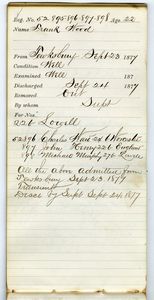 Reg. No. 52,895-896-897-898 Age 22
Name Frank Wood
From Tewksbury Sept 23 1877
Condition Well
Examined Well 187
Discharged Sept 24 1877
Removed Out 187
By whom Supt
For Nos.
226 Lowell
52896 Charles Hart 24 Worcester
897 John Henry 26 England
898 Michael Murphy 27 Lowell
All the above admitted from
Tewksbury Sept 23 1877
Transient
Disc by Supt Sept 24 1877